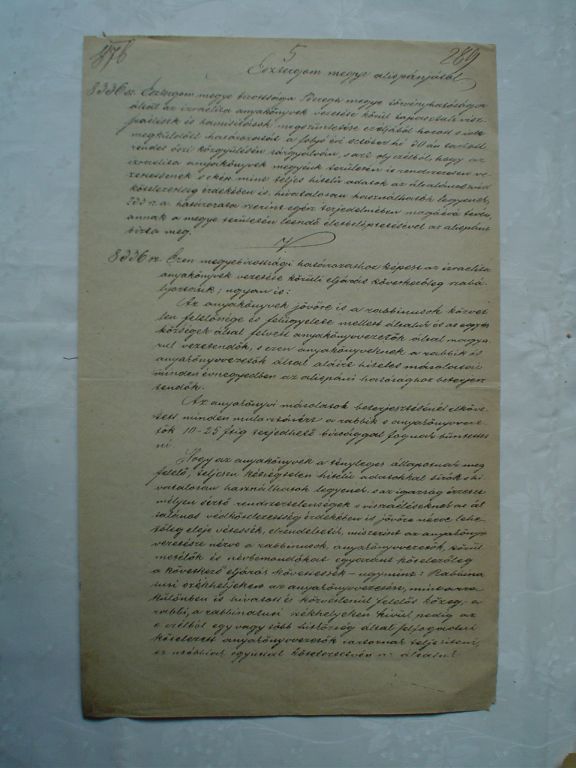 5 289
Esztergom megye alispánjától
8336 sz. Esztergom megye bizottsága Bereg megye törvényhatósága
által az izraelita anyakönyvek vezetése körül tapasztalt visz
szaélések és hamisítások megszüntetése czéljából hozott s ide
megküldött határozatát a folyó évi october hó án tartott
rendes őszi közgyűlésén tárgyalván, s azt oly czélból, hogy az
izraelita anyakönyvek megyénk területén is rendszeresen ve
zettessenek s ekén mint teljes hitelű adatok az általános véd
kötelezettség érdekében is hivatalosan használhatók legyenek,
a határozata szerint egész terjedelmében magáévá tevén,
annak a megye területén leendő életbeléptetésével az alispánt
bízta meg.
8336 sz. Ezen megyebizottsági határozathoz képest az izraelita
anyakönyvek vezetése körüli eljárás következőleg szabá
lyoztatik; ugyan is:
Az anyakönyvek jövőre is a rabbinusok közvet
len felelőssége és felügyelete mellett általuk és az egyház
községek által felvett anyakönyvvezetők által magya
rul vezetendők, s ezen anyakönyveknek a rabbik és
anyakönyvvezetők által aláírt hiteles másolatai
minden évnegyedben az alispáni hatósághoz beterjesz
tendők.
Az anyakönyvi másolatok beterjesztésénél elköve
tett minden mulasztásért a rabbik s anyakönyvveze
tők 10-25 ftig terjedhető birsággal fognak büntettet
ni
Hogy az anyakönyvek a tényleges állapotnak meg
felelő, teljesen kétségtelen hitelű adatokkal bírók s hi
vatalosan használhatók legyenek s az igazság érzetét
mélyen sértő rendszertelenségek s visszaéléseknek az ál
talános védkötelezettség érdekében is jövőre nézve lehe
tőleg eleje vétessék, elrendeltetik, miszerint az anyakönyv
vezetésre nézve a rabbinusok, anyakönyvvezetők, körül
metélők és névbemondókat egyaránt kötelezőleg
a következő eljárás követtessék – ugymint: Rabbina
tusi székhelyeken az anyakönyvvezetésre, mint arra
különben is hivatott és közvetlenül felelős közeg, a
rabbi, a rabbinatusi székhelyeken kívül pedig az
e czélból egy vagy több hitközség által felfogadni
kötelezett anyakönyvvezetők tartoznak teljesíteni,
ez utóbbiak egyuttal köteleztetvén az általuk